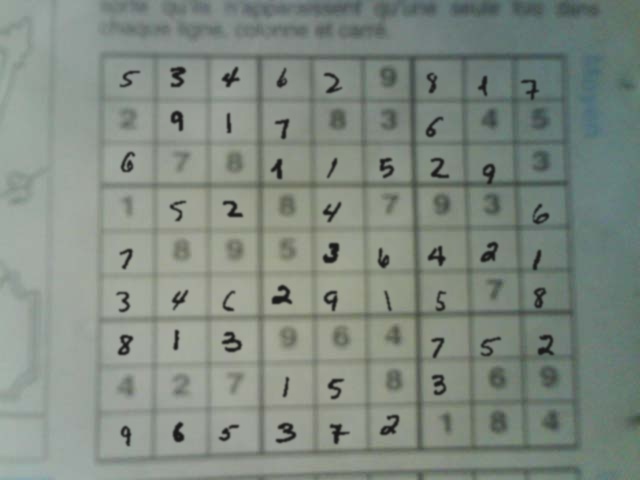 sorte qu'ils n'apparaissent qu'une seule fois dans
chaque ligne, colonne et carré.
Moyen
5 3 4 6 2 9 8 1 7
2 9 1 7 8 3 6 4 5
6 7 8 4 1 5 2 9 3
1 5 2 8 4 7 9 3 6
7 8 9 5 3 6 4 2 1
3 4 6 2 9 1 5 7 8
8 1 3 9 6 4 7 5 2
4 2 7 1 5 8 3 6 9
9 6 5 3 7 2 1 8 4